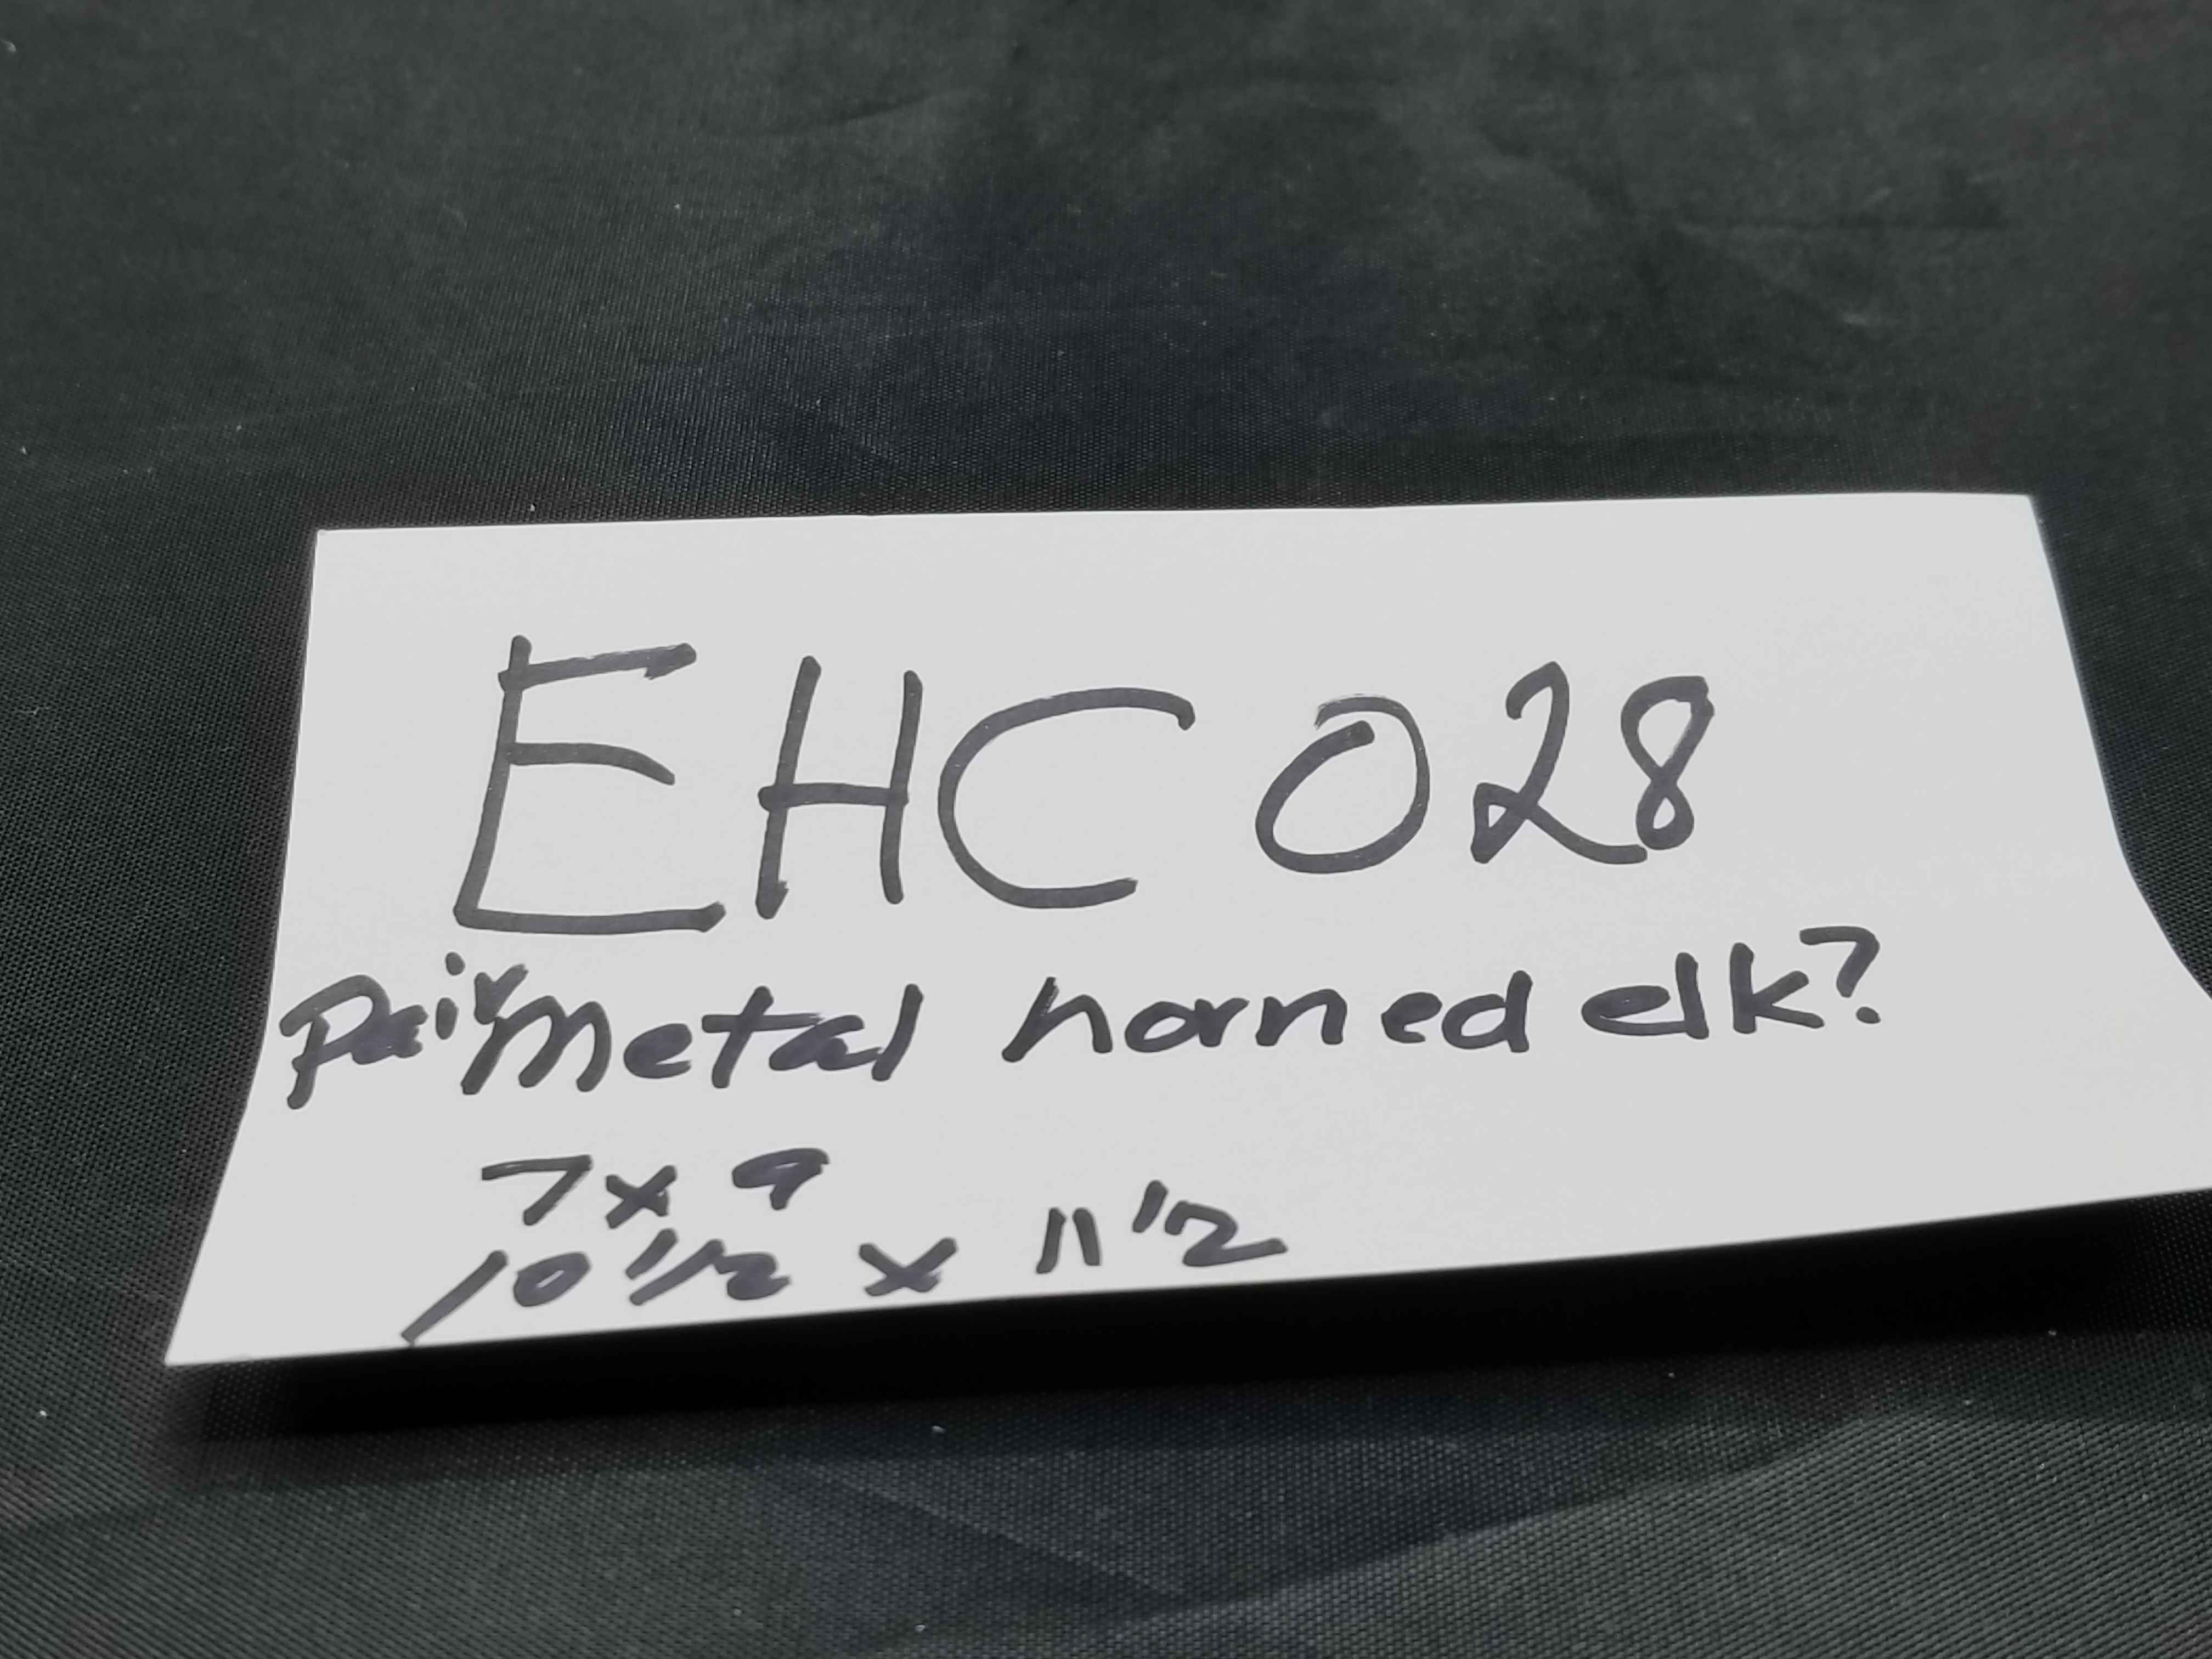 EHC 028
Pair Metal horned elk?
7 x 9
10 1/2 x 11 1/2